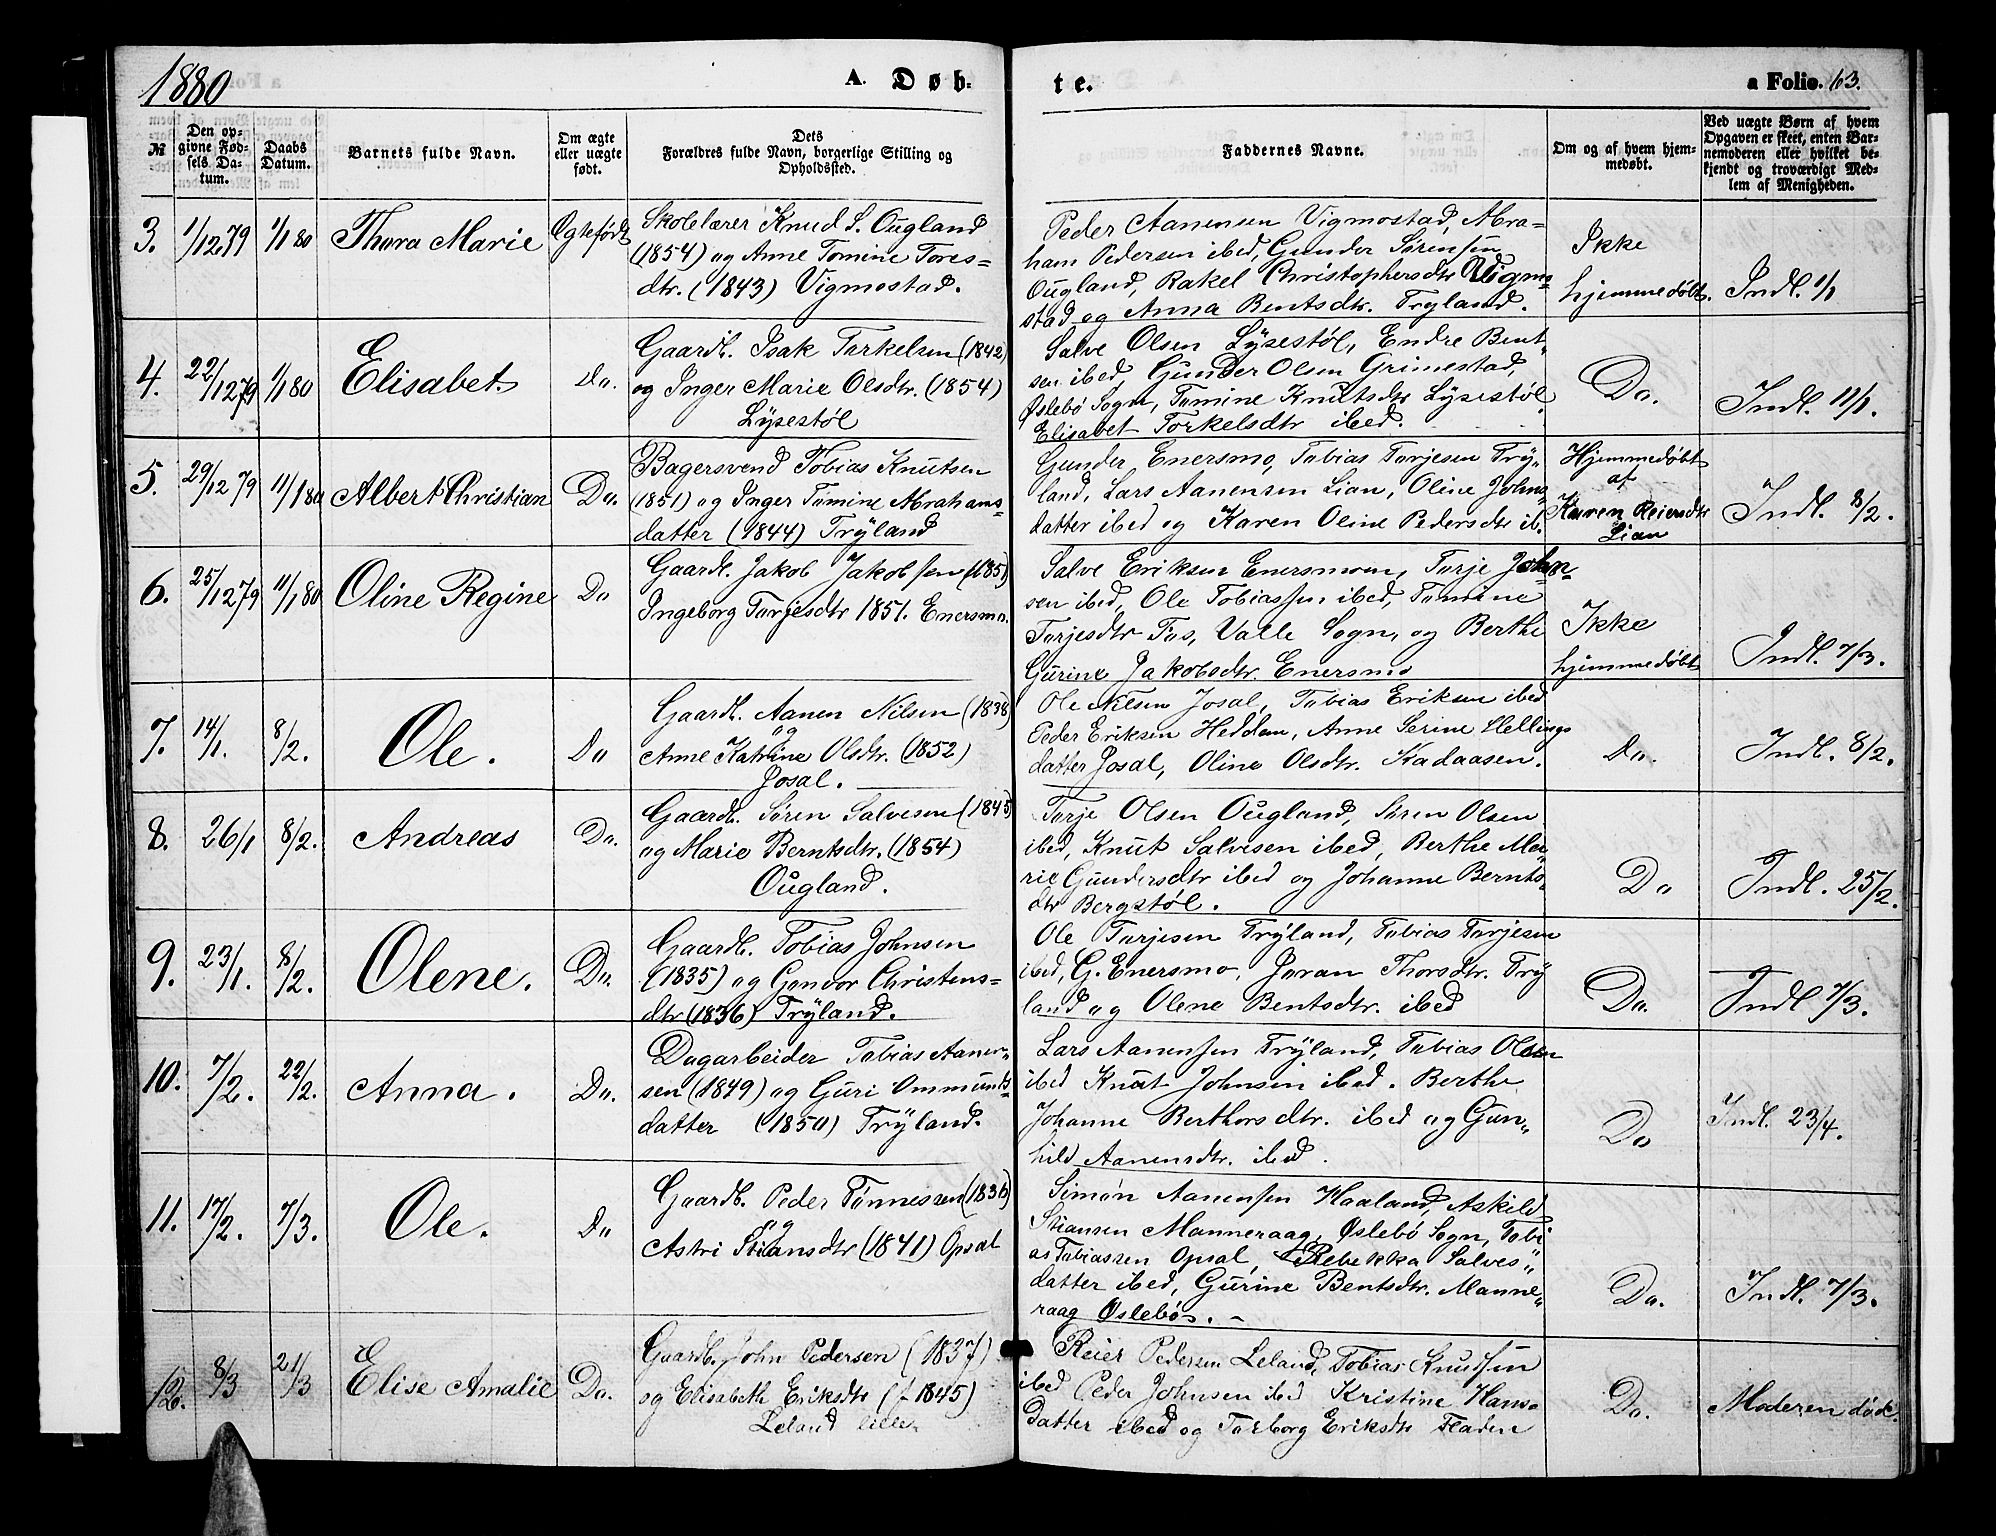 1880
A. Døb-
te.
a Folio. 63.
№
Den op-
givne Fød-
sels Da-
tum.
Daabs
Datum.
Barnets fulde Navn.
Om ægte
eller uægte
født.
Dets
Forældres fulde Navn, borgerlige Stilling og
Opholdssted.
Faddernes Navne.
Om og af hvem hjem-
medøbt.
Ved uægte Børn af hvem
Opgaven er skeet, enten Bar-
nemoderen eller hvilket be-
kjendt og troværdigt Med-
lem af Menigheden.
3. 1/12 79 1/1 80 Thora Marie Ægtefødt
Skolelærer Knud S. Ougland
(1854) og Anne Tomine Tores=
dtr. (1843) Vigmostad.
Peder Aanensen Vigmostad, Abra=
ham Pedersen ibed, Gunder Sørensen
Ougland, Rakel Christophersdtr Vigmo=
stad og Anna Bentsdtr. Tryland.
Ikke
hjemmedøbt.
Indl. 1/1
4. 22/12 79 1/1 80 Elisabet Do.
Gaardb. Isak Torkelsen (1842)
og Inger Marie Olsdtr. (1854)
Lÿsestøl
Salve Olsen Lÿsestøl, Endre Bent=
sen ibed, Gunder Olsen Grimestad,
Øslebø Sogn, Tomine Knutsdtr Lÿsestøl
Elisabet Torkelsdtr ibed.
Do.
Indl. 11/1.
5. 29/12 79 11/1 80 Albert Christian Do.
Bagersvend Tobias Knutsen
(1851) og Inger Tomine Abrahams=
datter (1844) Trÿland
Gunder Enersmo, Tobias Torjesen Trÿ=
land, Lars Aanensen Lian, Oline Johns=
datter ibed og Karen Oline Pedersdtr ib.
Hjemmedøbt
af
Karen Reiersdtr
Lian
Indl. 8/2.
6. 25/12 79 11/1 80 Oline Regine Do
Gaardb. Jakob Jakobsen (1851)
Ingeborg Torjesdtr 1851. Enersmo.
Salve Eriksen Enersmoen, Torje John=
sen ibed, Ole Tobiassen ibed, Tomine
Torjesdtr Fos, Valle Sogn, og Berthe
Gurine Jakobsdtr. Enersmo
Ikke
hjemmedøbt
Indl. 7/3.
7. 14/1. 8/2. Ole. Do
Gaardb. Aanen Nilsen (1838)
og
Anne Katrine Olsdtr. (1852)
Josal.
Ole Nilsen Josal, Tobias Eriksen ibed
Peder Eriksen Heddam, Anne Serine Hellings
datter Josal, Oline Olsdtr. Kadaasen.
Do.
Indl. 8/2.
8. 26/1 8/2. Andreas Do.
Gaardb. Søren Salvesen (1845)
og Marie Berntsdtr. (1854)
Ougland.
Torje Olsen Ougland, Søren Olsen
ibed, Knut Salvesen ibed, Berthe Ma=
rie Gundersdtr ibed og Johanne Bernts=
dtr Bergstøl.
Do
Indl. 25/2.
9. 23/1. 8/2. Olene. Do.
Gaardb. Tobias Johnsen
(1835) og Gonvor Christens=
dtr (1836) Trÿland.
Ole Torjesen Trÿland, Tobias Torjesen
ibed, G. Enersmo, Joran Thorsdtr. Trÿ
land og Olene Bentsdtr. ibed
Do.
Indl 7/3.
10. 7/2. 22/2. Anna. Do.
Dagarbeider Tobias Aanen=
sen (1849) og Guri Ommunds
datter (1850) Trÿland.
Lars Aanensen Trÿland, Tobias Olsen
ibed Knut Johnsen ibed. Berthe
Johanne Berthorsdtr. ibed og Gun=
hild Aanensdtr. ibed.
Do
Indl. 23/4.
11. 17/2. 7/3. Ole. Do
Gaardb. Peder Tønnessen (1836)
og
Astri Stiansdtr (1841) Opsal
Simon Aanensen Haaland, Askild
Stiansen Manneraag, Øslebø Sogn, Tobi
as Tobiassen Opsal, Rebekka Salves=
datter ibed, Gurine Bentsdtr. Manne=
raag Øslebø.
Do.
Indl. 7/3.
12. 8/3 21/3 Elise Amalie Do.
Gaardb. John Pedersen (1837)
og Elisabeth Eriksdtr (f 1845)
Leland lille
Reier Pedersen Leland, Tobias Knudsen
ibed Peder Johnsen ibed Kristine Hans=
datter ibed og Torborg Eriksdtr Fladen
Do.
Moderen døde.